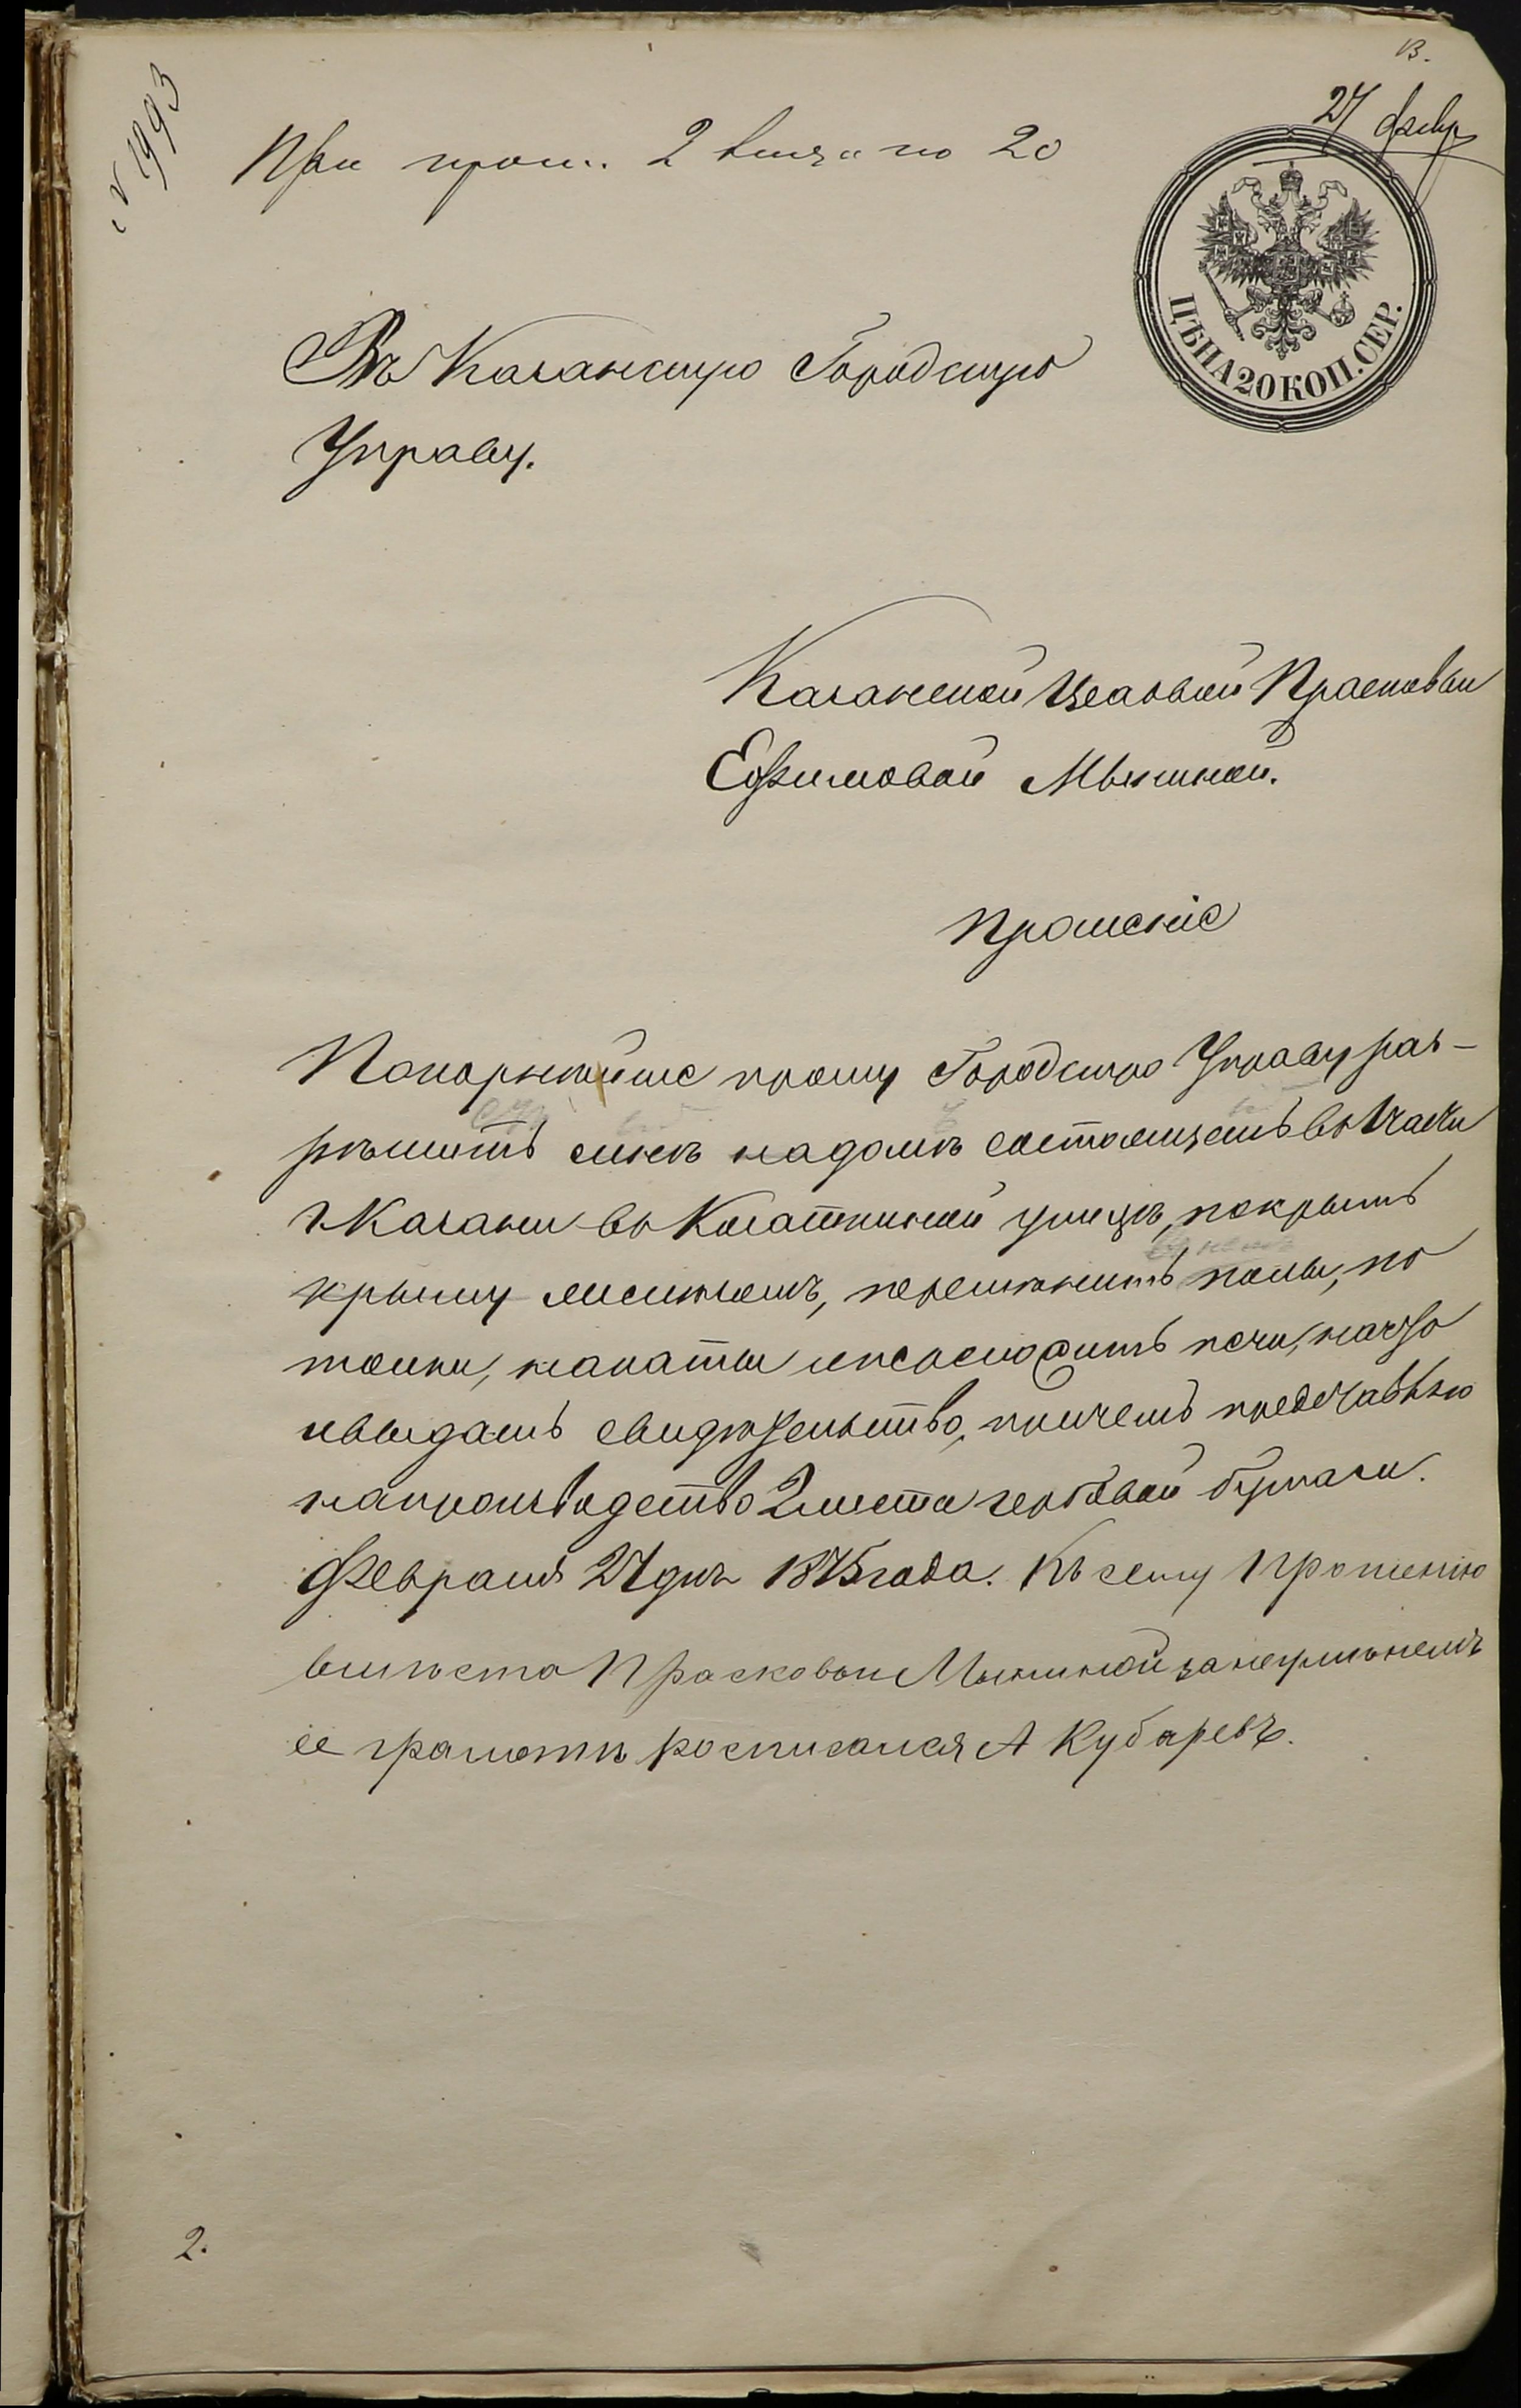 В.
27 февр
№ 1993
При прош. 2 листа по 20
ЦѢНА 20 КОП. СЕР.
Въ Казанскую Городскую
Управу.
Казанской Цеховой Прасковьи
Ефимовой Мыминой.
Прошеніе
Покорнѣйше прошу Городскую Управу раз-
рѣшить мнѣ надомѣ состоящемъ во части
г Казани въ улицѣ, покрыть
крышу лисникомъ, перемѣнить полы, по
толки, накаты ипсосложить печи, начто
ивыдать свидѣтельство, причемъ представляю
напроизводство 2 листа гербовой бумаги.
Февраля 27 дня 1875 года. Къ сему прошенію
вмѣсто Прасковьи Мыминой занеумѣнемъ
ее грамотѣ росписался А Кубаревъ.
2.